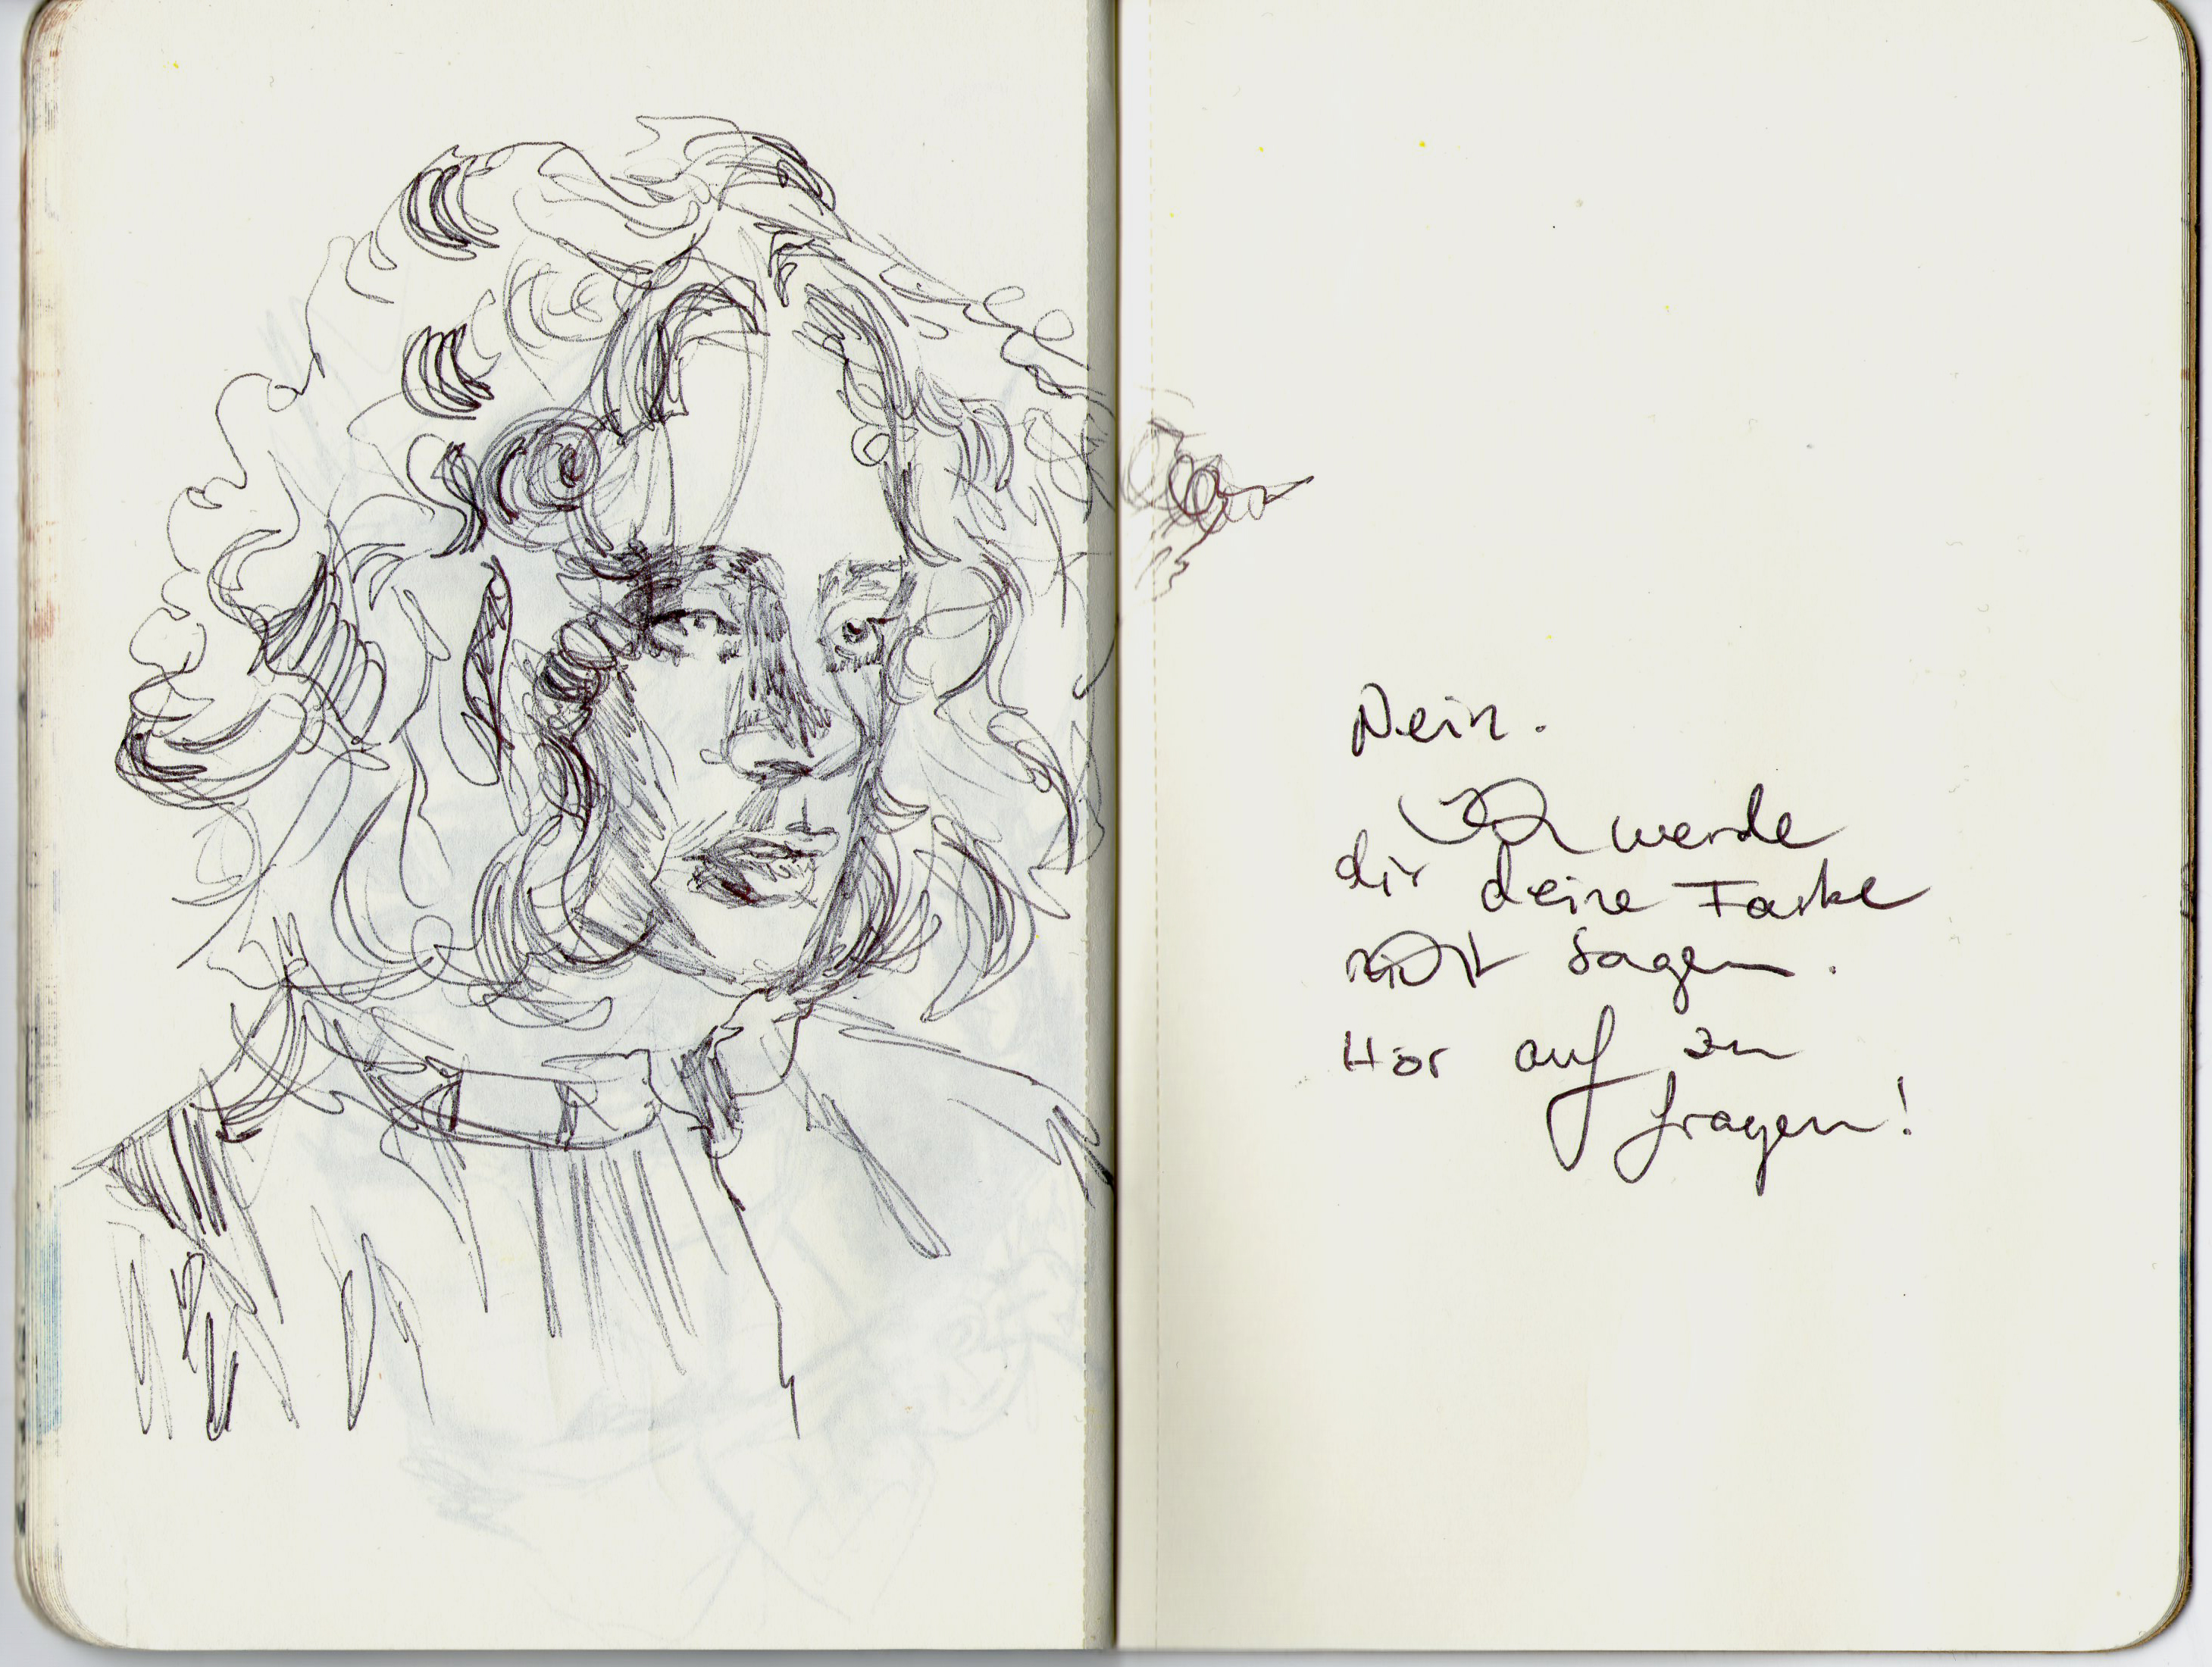 Nein.
Ich werde
dir deine Farbe
nicht sagen.
Hör auf zu
fragen!